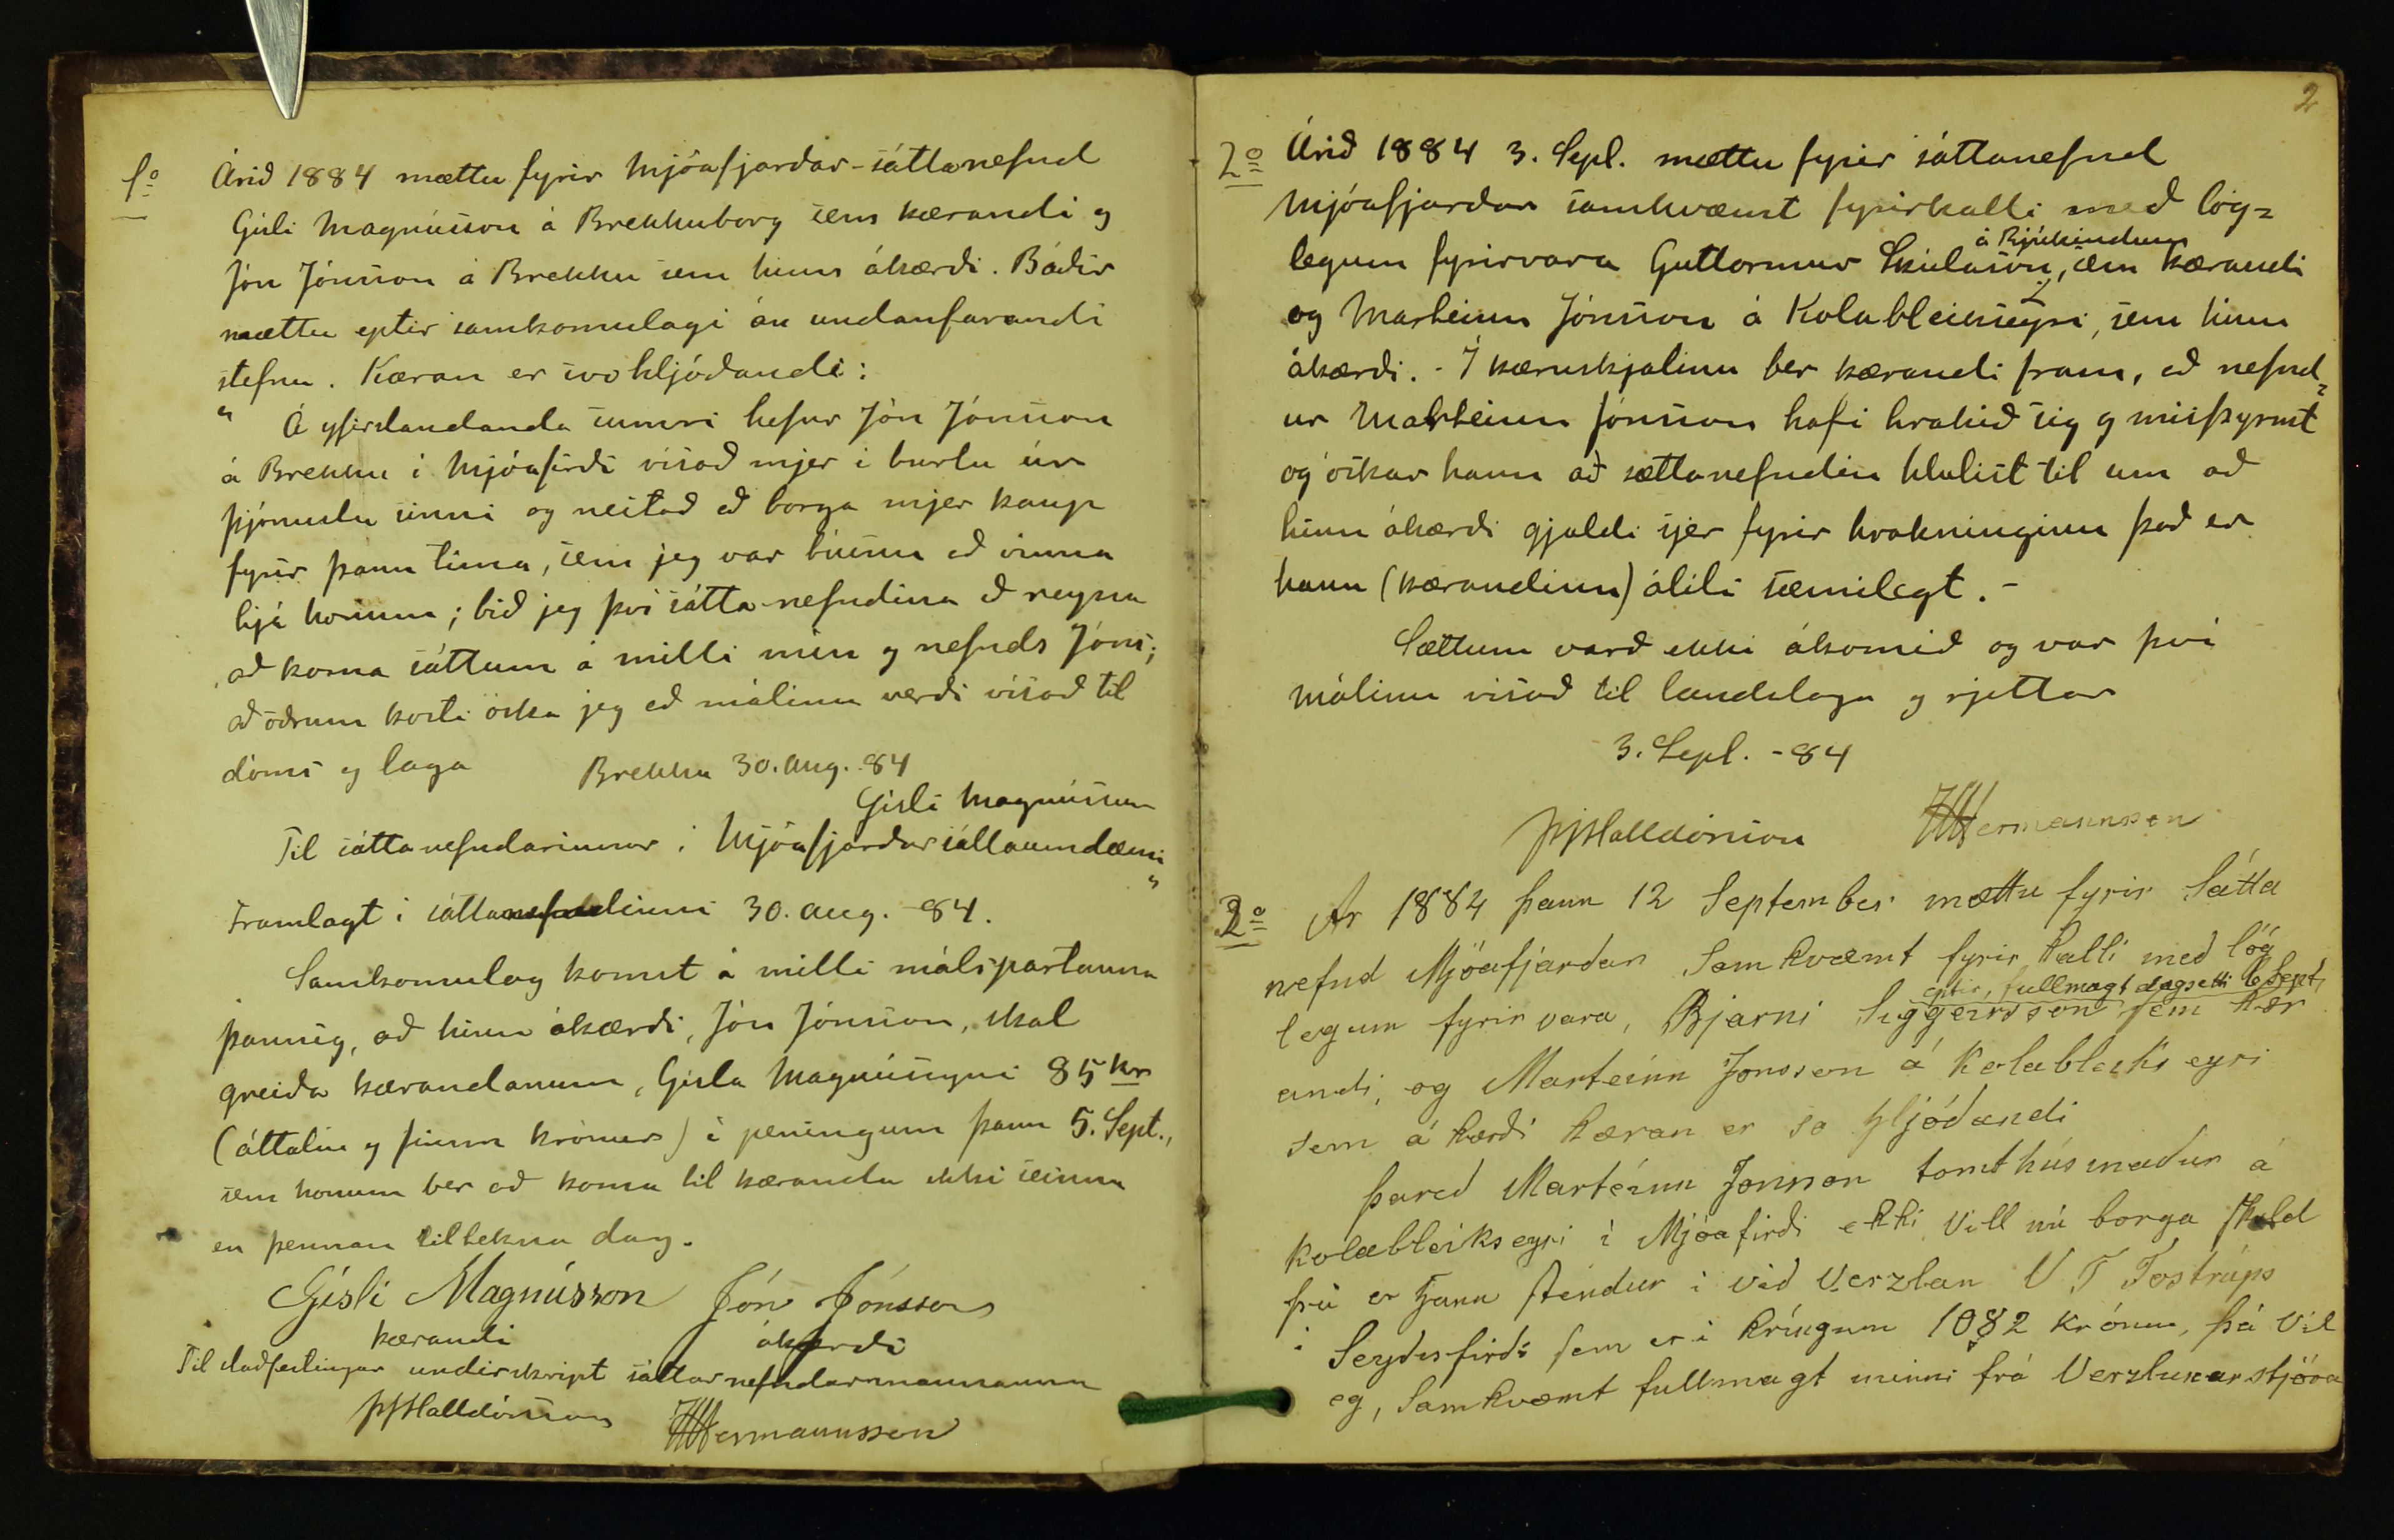 1º
Árið 1884 mættu fyrir Mjóafjarðar-sáttanefnd
Gísli Magnússon á Brekkuborg sem kærandi og
Jón Jónsson á Brekku sem hinn ákærði. Báðir
mættu eptir samkomulagi án undanfarandi
stefnu. Kæran er svo hljóðandi:
" Á yfirstandanda sumri hefur Jón Jónsson
á Brekku í Mjóafirði vísað mjer í burtu úr
þjónustu sinni og neitað að borga mjer kaup
fyrir þann tíma, sem jeg var búinn að vinna
hjá honum; bið jeg því sátta-nefndina að reyna
að koma sáttum á milli mín og nefnds Jóns;
að öðrum kosti óska jeg að málinu verði vísað til
dóms og laga Brekku 30. Aug. 84
Gísli Magnússon
Til sáttanefndarinnar í Mjóafjarðarsáttaumdæmi "
Framlagt í sáttanefndinni 30. aug. - 84.
Samkomulag komst á milli málspartanna
þannig, að hinn ákærði, Jón Jónsson, skal
greiða kærandanum, Gísla Magnússyni 85 kr
(áttatíu og fimm krónur) í peningum þann 5. Sept.,
sem honum ber að koma til kæranda ekki seinna
en þennan tiltekna dag.
Gísli Magnússon Jón Jónsson
kærandi ákærði
Til staðfestingar underskript sáttarnefndarmannanna
Halldórsson Hermannsson
2
2º
Árið 1884 3. Sept. mættu fyrir sáttanefnd
Mjóafjarðar samkvæmt fyrirkalli með lög=
legum fyrirvara Guttormur Skúlason, sem kærandi
og Marteinn Jónsson á Kolableikseyri, sem hinn
ákærði. - Í kæruskjalinu ber kærandi fram, að nefnd=
ur Marteinn Jónsson hafi hrakið sig og misþyrmt
og óskar hann að sættanefndin hlutist til um að
hinn ákærði gjaldi sjer fyrir hrakninginn það er
hann (kærandinn) áliti sæmilegt. -
Sættum varð ekki ákomið og var því
málinu vísað til landslaga og rjettar
3. Sept. - 84
Halldórsson Hermannsson
3º
Ár 1884 þann 12 September mættu fyrir Sátta
nefnd Mjóafjarðar Samkvæmt fyrir kalli með lög
eptir, fullmagt dagsetti 6 Sept,
legum fyrir vara, Bjarni Siggeirsson sem kær
andi, og Marteinn Jonsson á Kolableiks eyri
sem á kærði kæran er so hljóðandi
þareð Marteinn Jonsson tomthúsmaður á
Kolableikseyri í Mjóafirði ekki vill nú borga skuld
þrá er hann stendur i við Verzlan V T Tostrúps
í Seyðisfirði sem er i kríngum 1082 krónur, þá vil
eg, Samkvæmt fullmagt minni frá Verzlunarstjóra